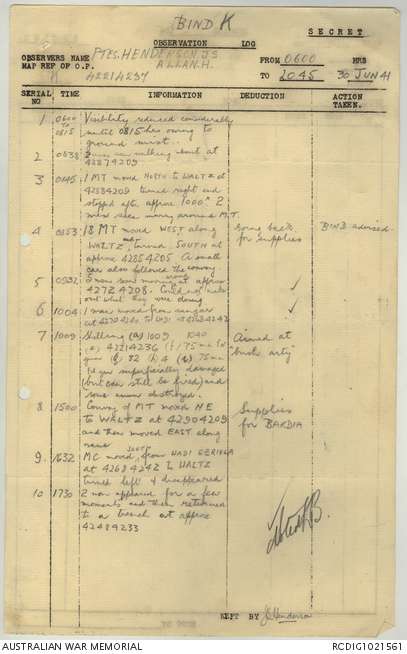 BIND K
SECRET
OBSERVATION LOG
OBSERVERS NAME Ptes. HENDERSON. JS
ALLAN. H.
FROM 0600 HRS
MAP REF OF O.P. 42214237
TO 2045 30 JUN 41
SERIAL NO TIME INFORMATION DEDUCTION ACTION TAKEN.
1 0600 to 0815 Visibility reduced considerably
until 0815 hrs owing to
ground mist.
2 0838 2 men walking about at
42874209
3 0845 1 MT moved NORTH to WALTZ at
42884209 turned right and
stopped after approx 1000x 2
men seen moving around M.T.
4 0853 18 MT moved WEST along
WALTZ, and turned SOUTH at
approx 42854205 A small
car also followed the convoy.
Going back
for supplies
BIND advised.
5 0932 men seen moving at approx
42724208. Could not make
out what they were doing
6 1004 1 man moved from sangar
at
7 1009 Shelling (a) 1009
42214236
gun (g) 82 (h) 4 75 mm
gun superficially damaged
(but can still be fired) and
some ammo destroyed.
Aimed at
"bush arty"
8 1500 Convoy of MT moved NE
to WALTZ at 42904209
and then moved EAST along
same
Supplies
for BARDIA
9 1632 MC moved South from WADI GERIULA
at 42684242 to WALTZ
turned left & disappeared
10 1730 2 men appeared for a few
moments and then returned
to a trench at approx
42484233
KEPT BY JS Henderson
AUSTRALIAN WAR MEMORIAL
RCDIG1021561